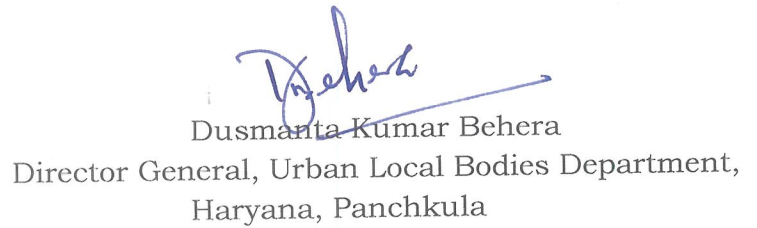 Dbehera
Dusmanta Kumar Behera
Director General, Urban Local Bodies Department,
Haryana, Panchkula